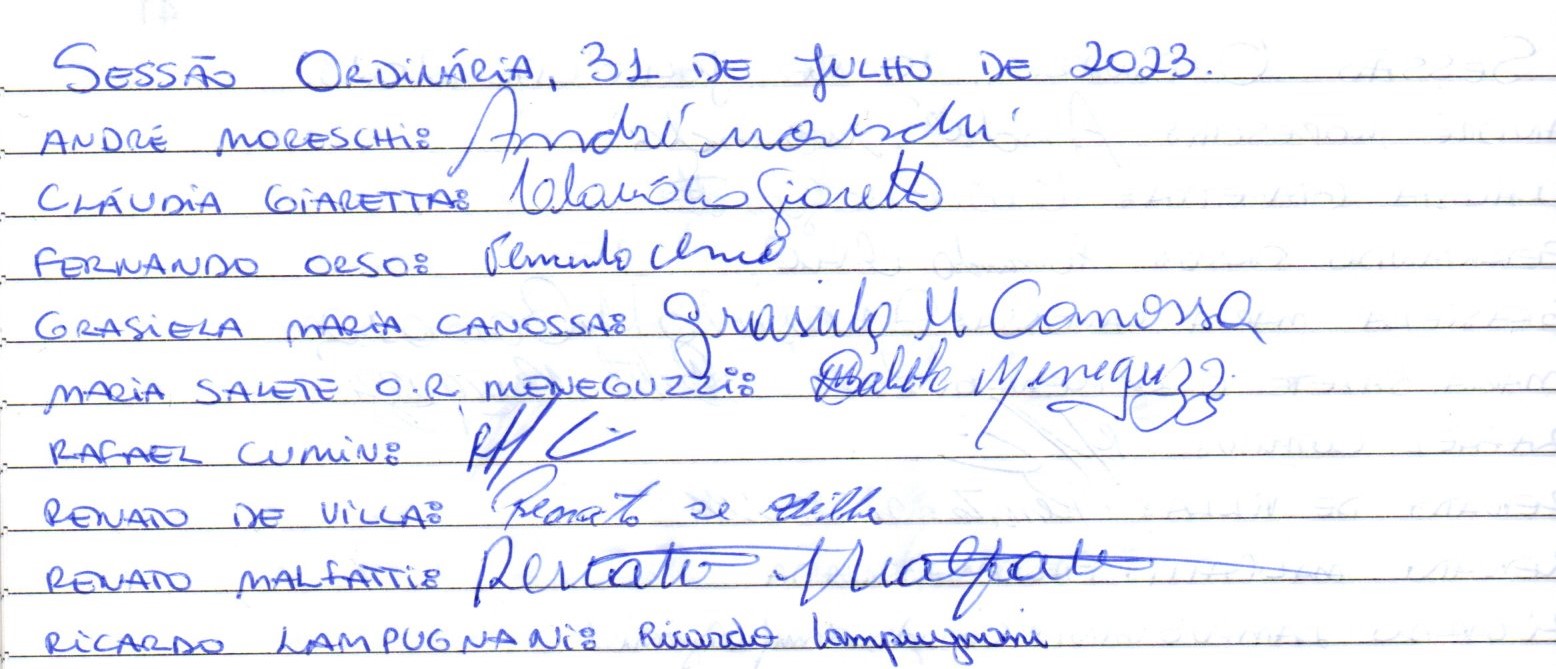 SESSÃO ORDINÁRIA, 31 DE JULHO DE 2023.
ANDRÉ MORESCHI: André Moreschi
CLÁUDIA GIARETTA: Claudia Giaretta
FERNANDO ORSO: Fernando Orso
GRASIELA MARIA CANOSSA: Grasiela M Canossa
MARIA SALETE O.R. MENEGUZZI: Salete Meneguzzi
RAFAEL CUMIN:
RENATO DE VILLA: Renato de Villa
RENATO MALFATTI: Renato Malfatti
RICARDO LAMPUGNANI: Ricardo Lampugnani